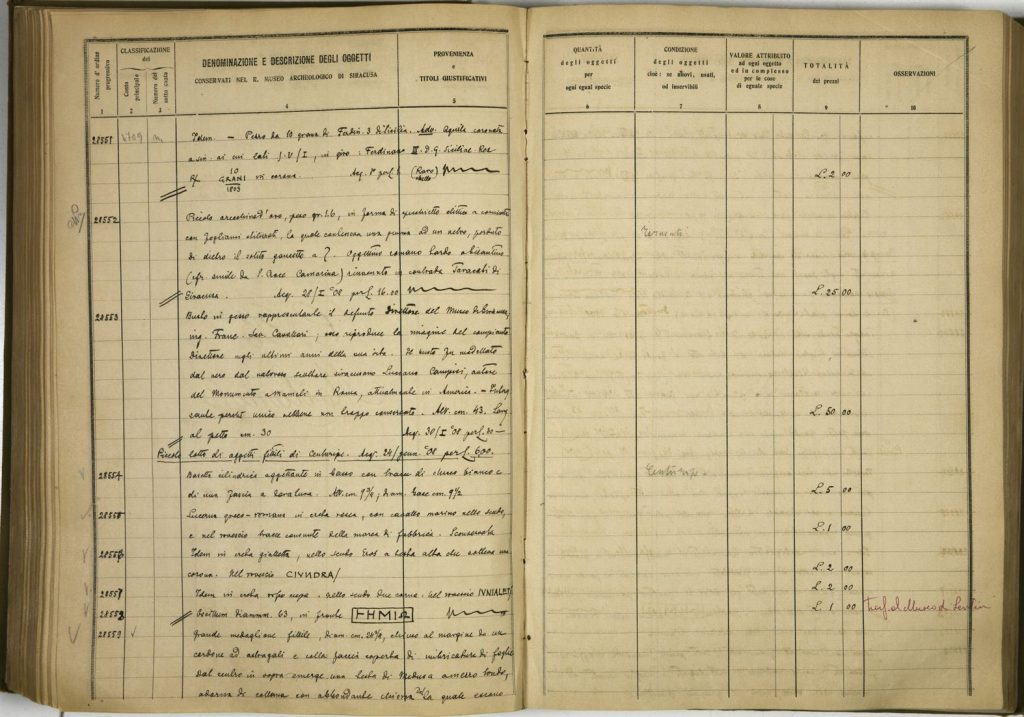 Numero d'ordine progressivo
CLASSIFICAZIONE
del
Conto principale
Numero del sotto conto
DENOMINAZIONE E DESCRIZIONE DEGLI OGGETTI
CONSERVATI NEL R. MUSEO ARCHEOLOGICO DI SIRACUSA
PROVENIENZA
e
TITOLI GIUSTIFICATIVI
1 2 3 4 5
28551 Idem. — Pezzo da 10 grana di Ferdin. 3 di Sicilia. Adv. Aquila coronata
a sin. ai cui lati J. V/I, in giro: Ferdinan III. D. G. Siciliae Rex
R/ 10 GRANI 1803 in corona. (Raro)
28552 Piccolo orecchino d'oro, peso gr. 1.6, in forma di
con
di dietro il solito gancetto a ?. Oggettino romano tardo o bizantino
(cfr. simile da S. Croce Camarina) rinvenuto in contrada Taracati di
Siracusa. Acq. 28/I °08 per £. 16.00
28553 Busto in gesso rappresentante il defunto Direttore del Museo di Siracusa,
ing. Franc. Sav. Cavallari; esso riproduce la imagine del compianto
direttore negli ultimi anni della sua vita. Il busto fu modellato
dal vero dal valoroso scultore siracusano Luciano Campisi, autore
del Monumento a Mameli in Roma, attualmente in America. —
perchè unico
Alt. cm. 43.
al petto cm. 30 Acq. 30/I °08 per £. 30 —
Piccolo lotto di oggetti fittili di Centuripe. Acq. 24/genn. °08 per £. 600.
28554 Basetta cilindrica aggettante in basso con tracce di stucco bianco e
di una fascia
28555 Lucerna greco-romana in creta rossa, con cavallo marino nello scudo,
e nel rovescio tracce consunte della marca di fabbrica. Sconservata
28556 Idem in creta gialletta, nello scudo Eros a
corona. Nel rovescio CIVNDRA/
28557 Idem in creta nello scudo due Nel rovescio IVNIALEX/
28558 Oscillum diamm. 63, in fronte FHMIΩ
28559 Grande medaglione fittile, diam. cm. chiuso al margine da un
cordone ad astragali e colla faccia coperta di imbricature di foglie
dal centro in sopra emerge una testa di Medusa a mezzo tondo,
adorna di collana con abbondante chioma la quale
QUANTITÀ
degli oggetti
per
ogni egual specie
CONDIZIONE
degli oggetti
cioè: se nuovi, usati,
od inservibili
VALORE ATTRIBUITO
ad ogni oggetto
ed in complesso
per le cose
di eguale specie
TOTALITÀ
dei prezzi
OSSERVAZIONI
6 7 8 9 10
L. 2 00
L. 25 00
L. 30 00
Centuripe
L. 5 00
L. 1 00
L. 2 00
L. 2 00
L. 1 00 Trasf. al Museo di Lentini